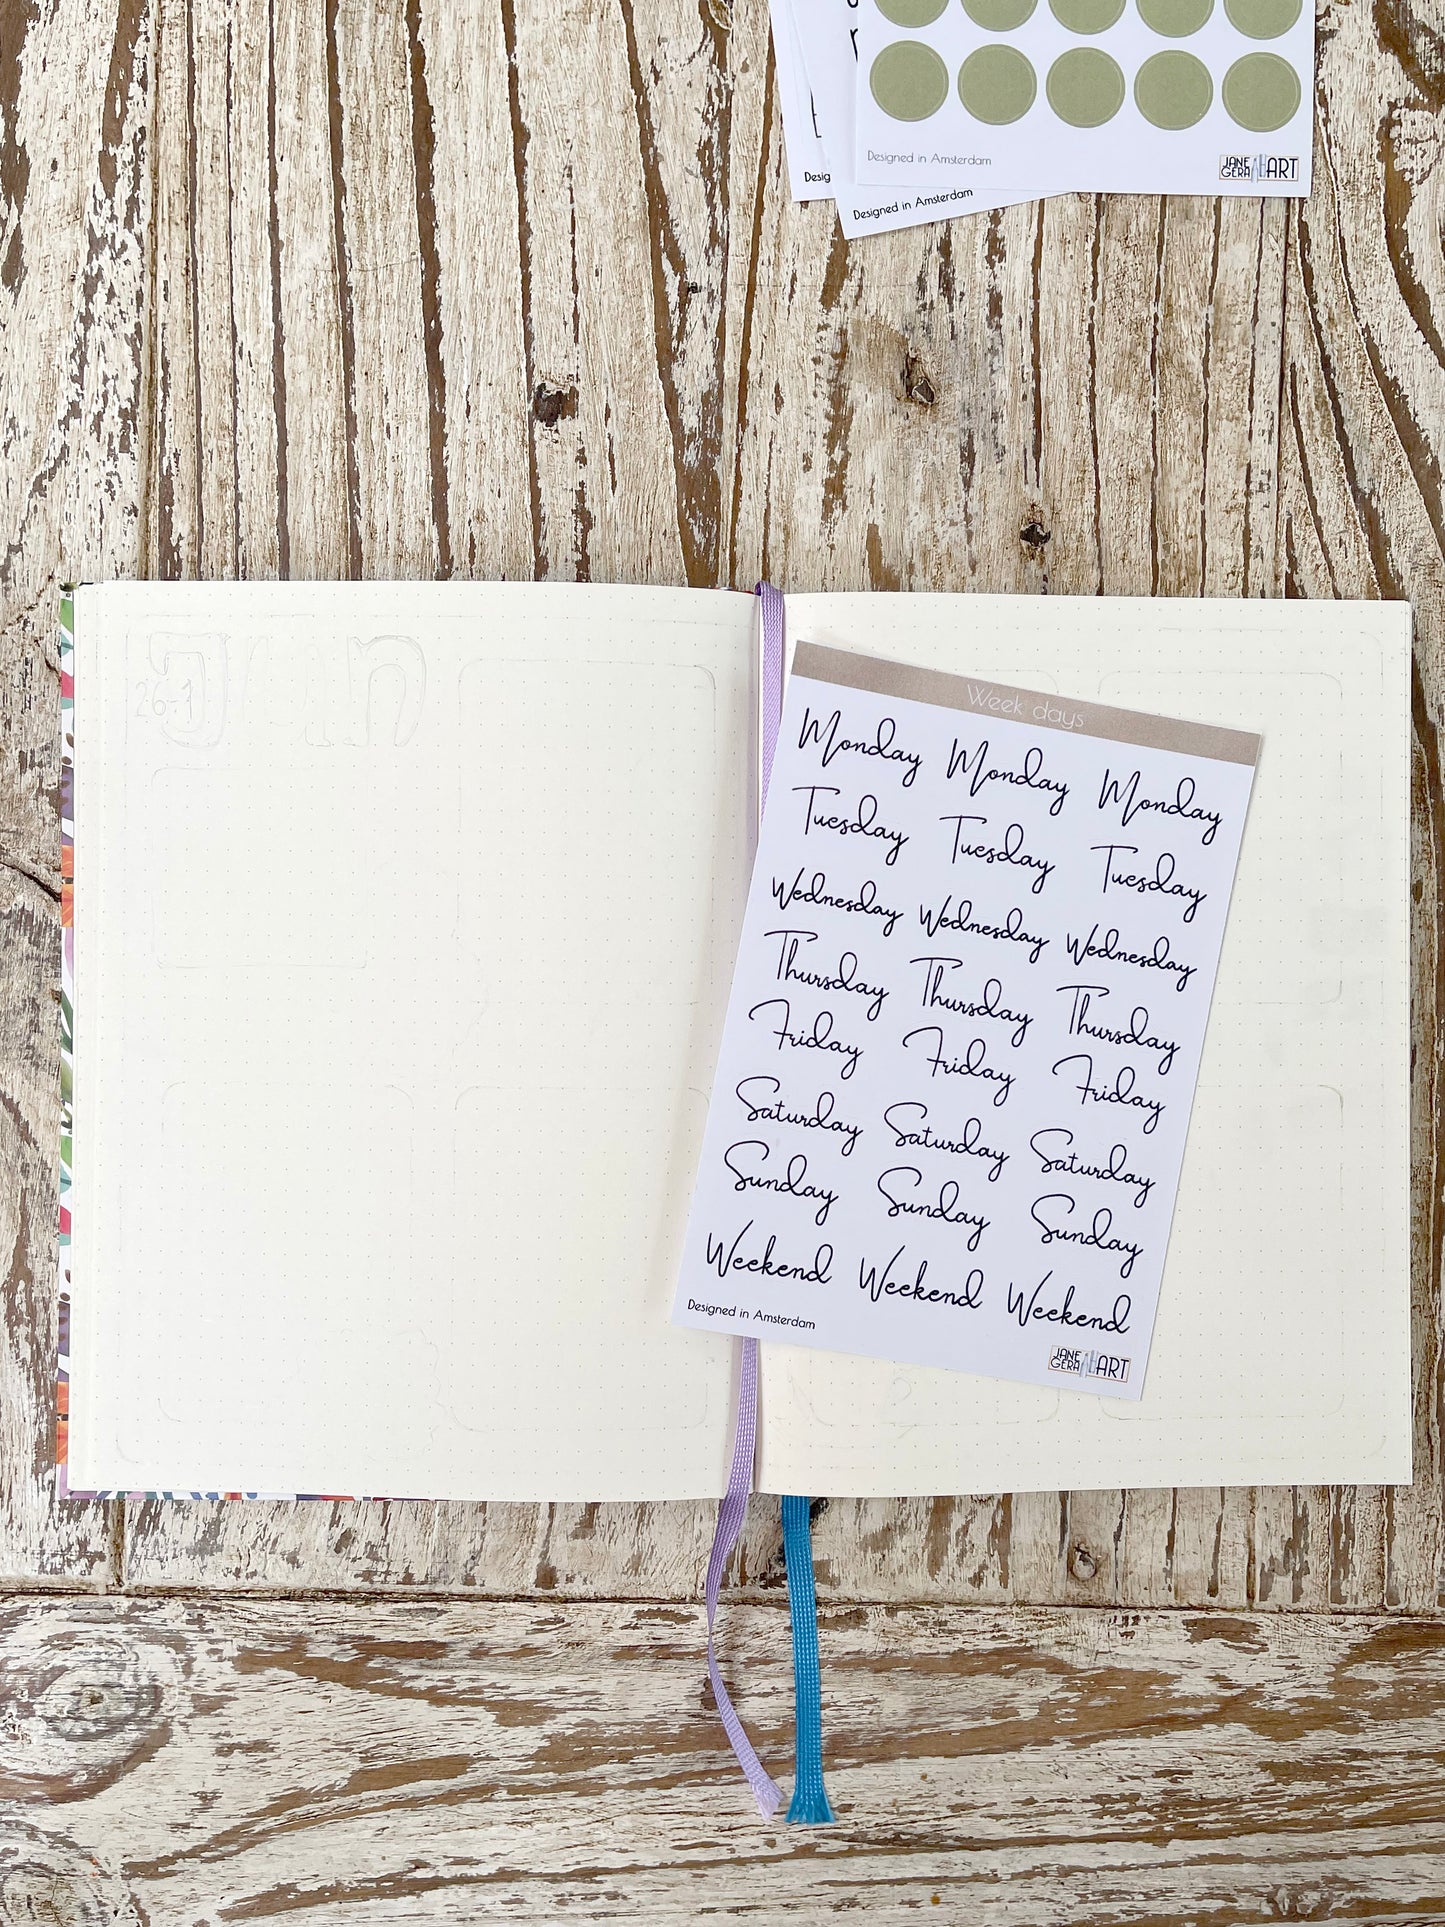 Designed in Amsterdam
JANE
GERA ART
Desig
Designed in Amsterdam
26-1
Week days
Monday Monday Monday
Tuesday Tuesday Tuesday
Wednesday Wednesday Wednesday
Thursday Thursday Thursday
Friday Friday Friday
Saturday Saturday Saturday
Sunday Sunday Sunday
Weekend Weekend Weekend
Designed in Amsterdam
JANE
GERA ART